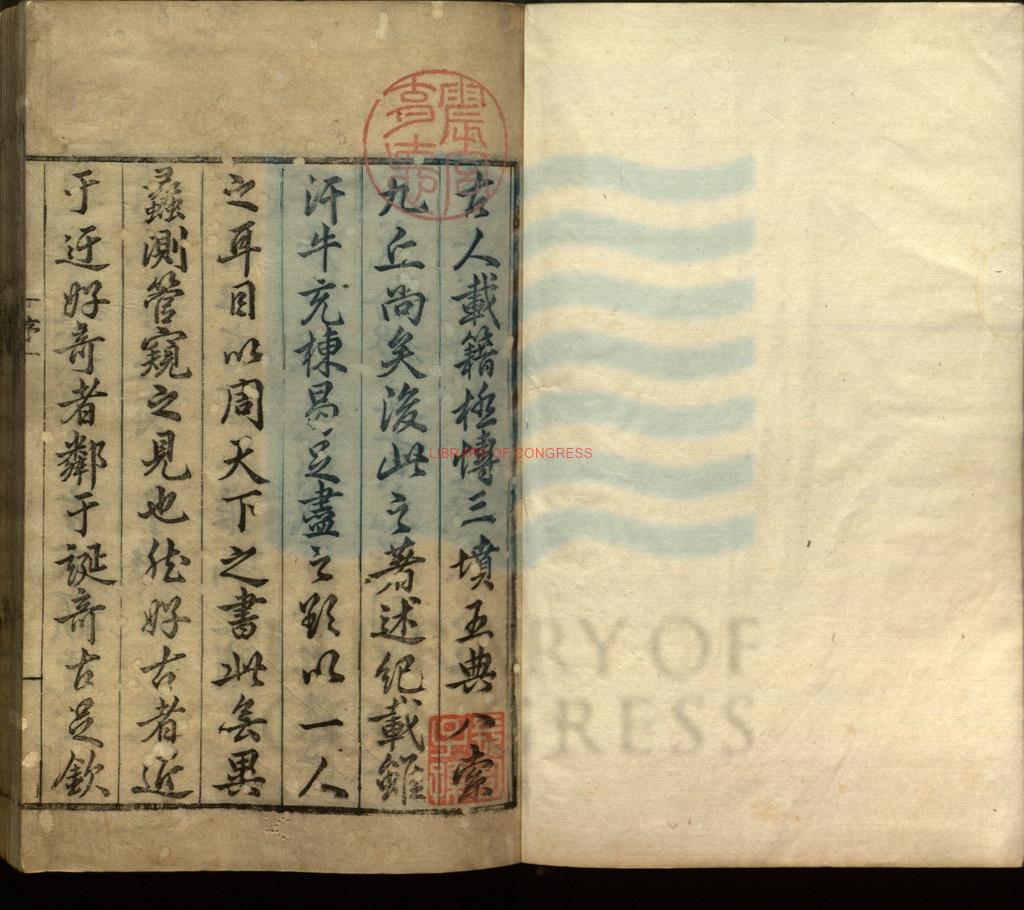 古人載籍極博三墳五典八索
九丘尚矣後此之著述紀載雖
汗牛充棟曷足盡之欲以一人
之耳目以周天下之書此無異
蠡測管窺之見也然好古者近
于迂好奇者鄰于誕奇古足欽
序
LIBRARY OF CONGRESS
RY OF
GRESS